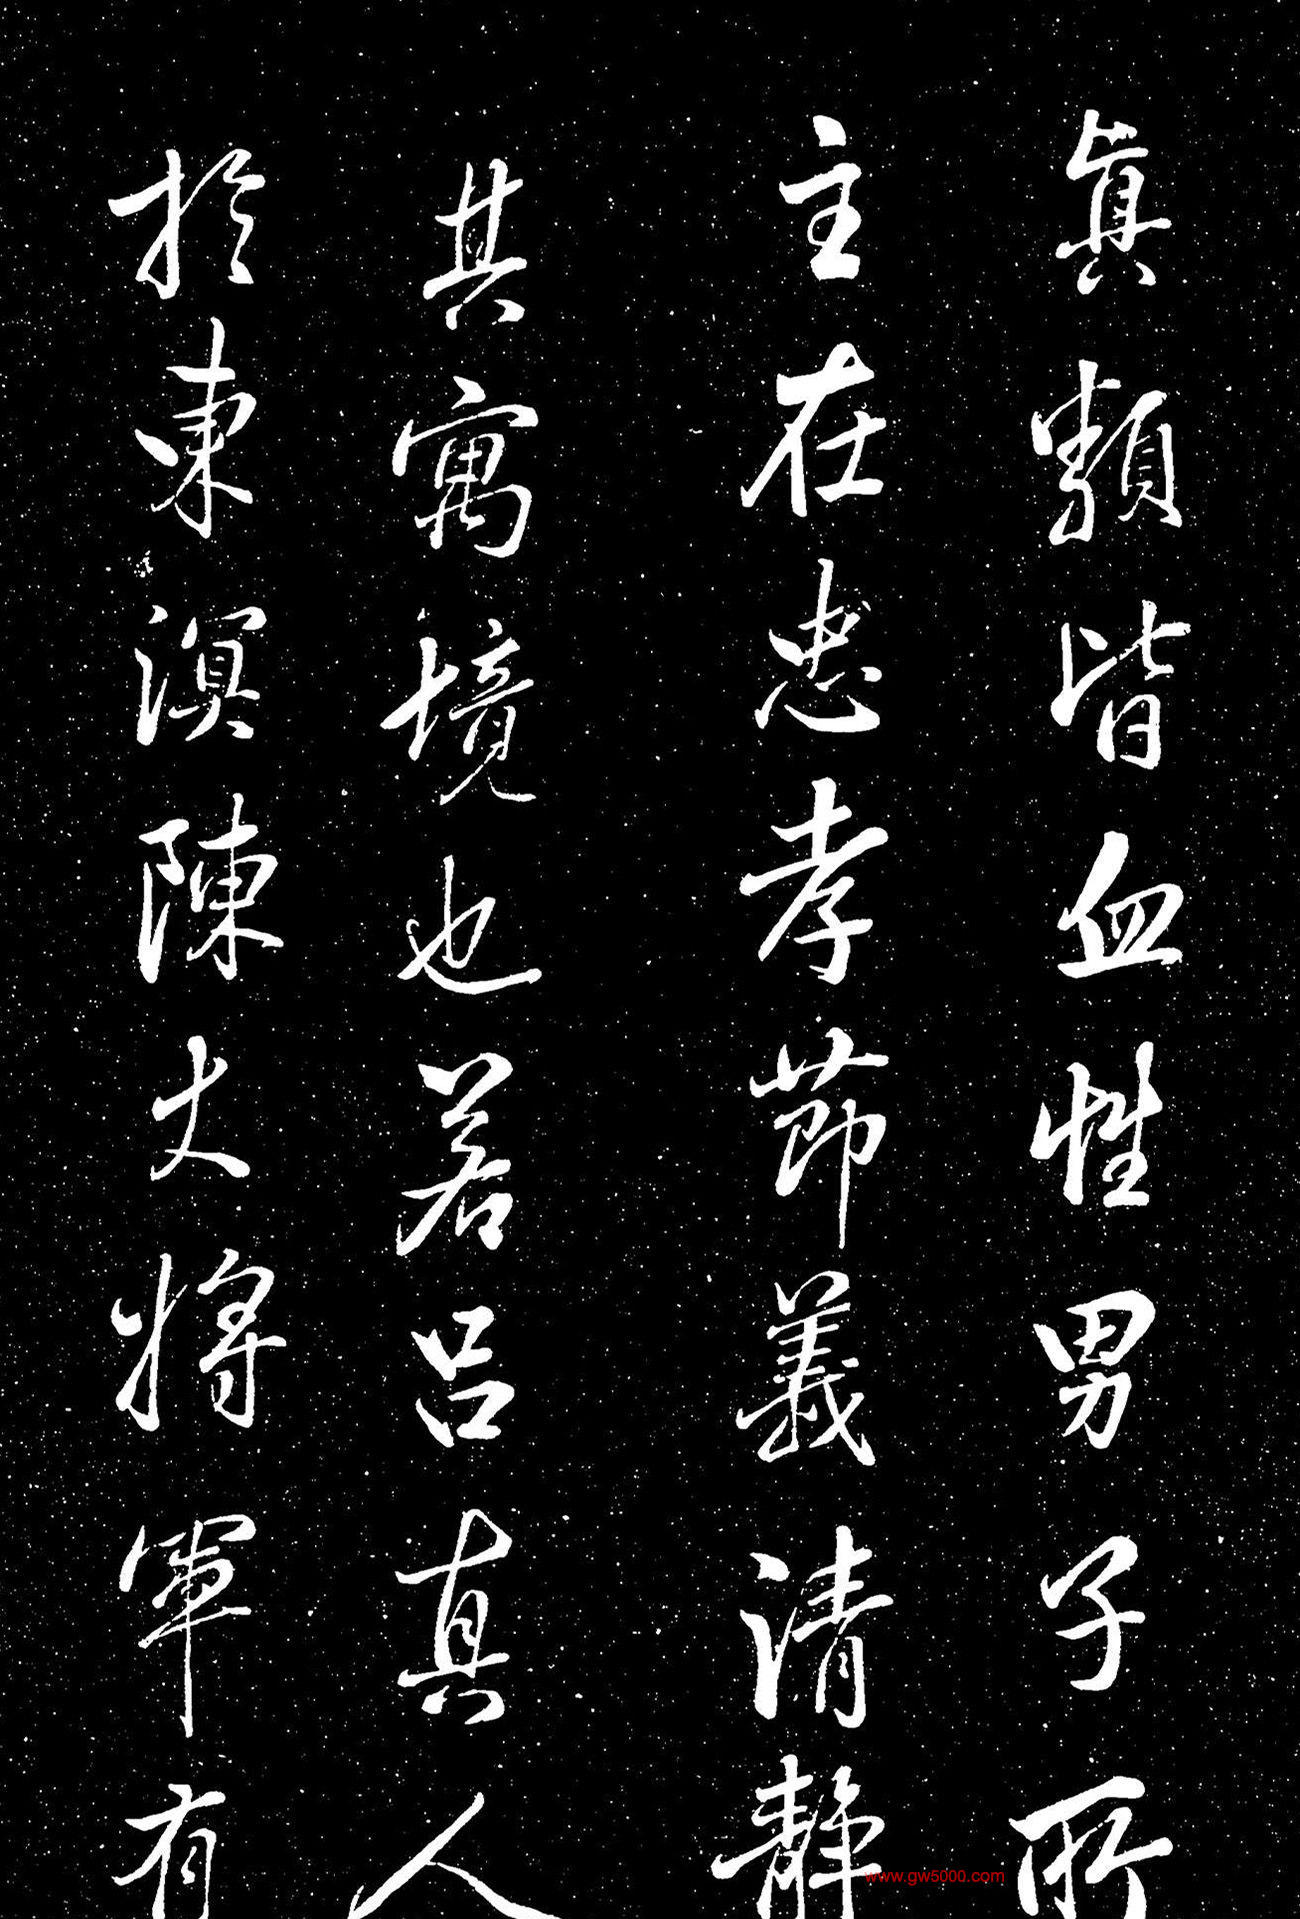 真類皆血性男子所
主在忠孝節義清静
其寓境也若呂真人
於東溟陳大將軍有
www.gw5000.com